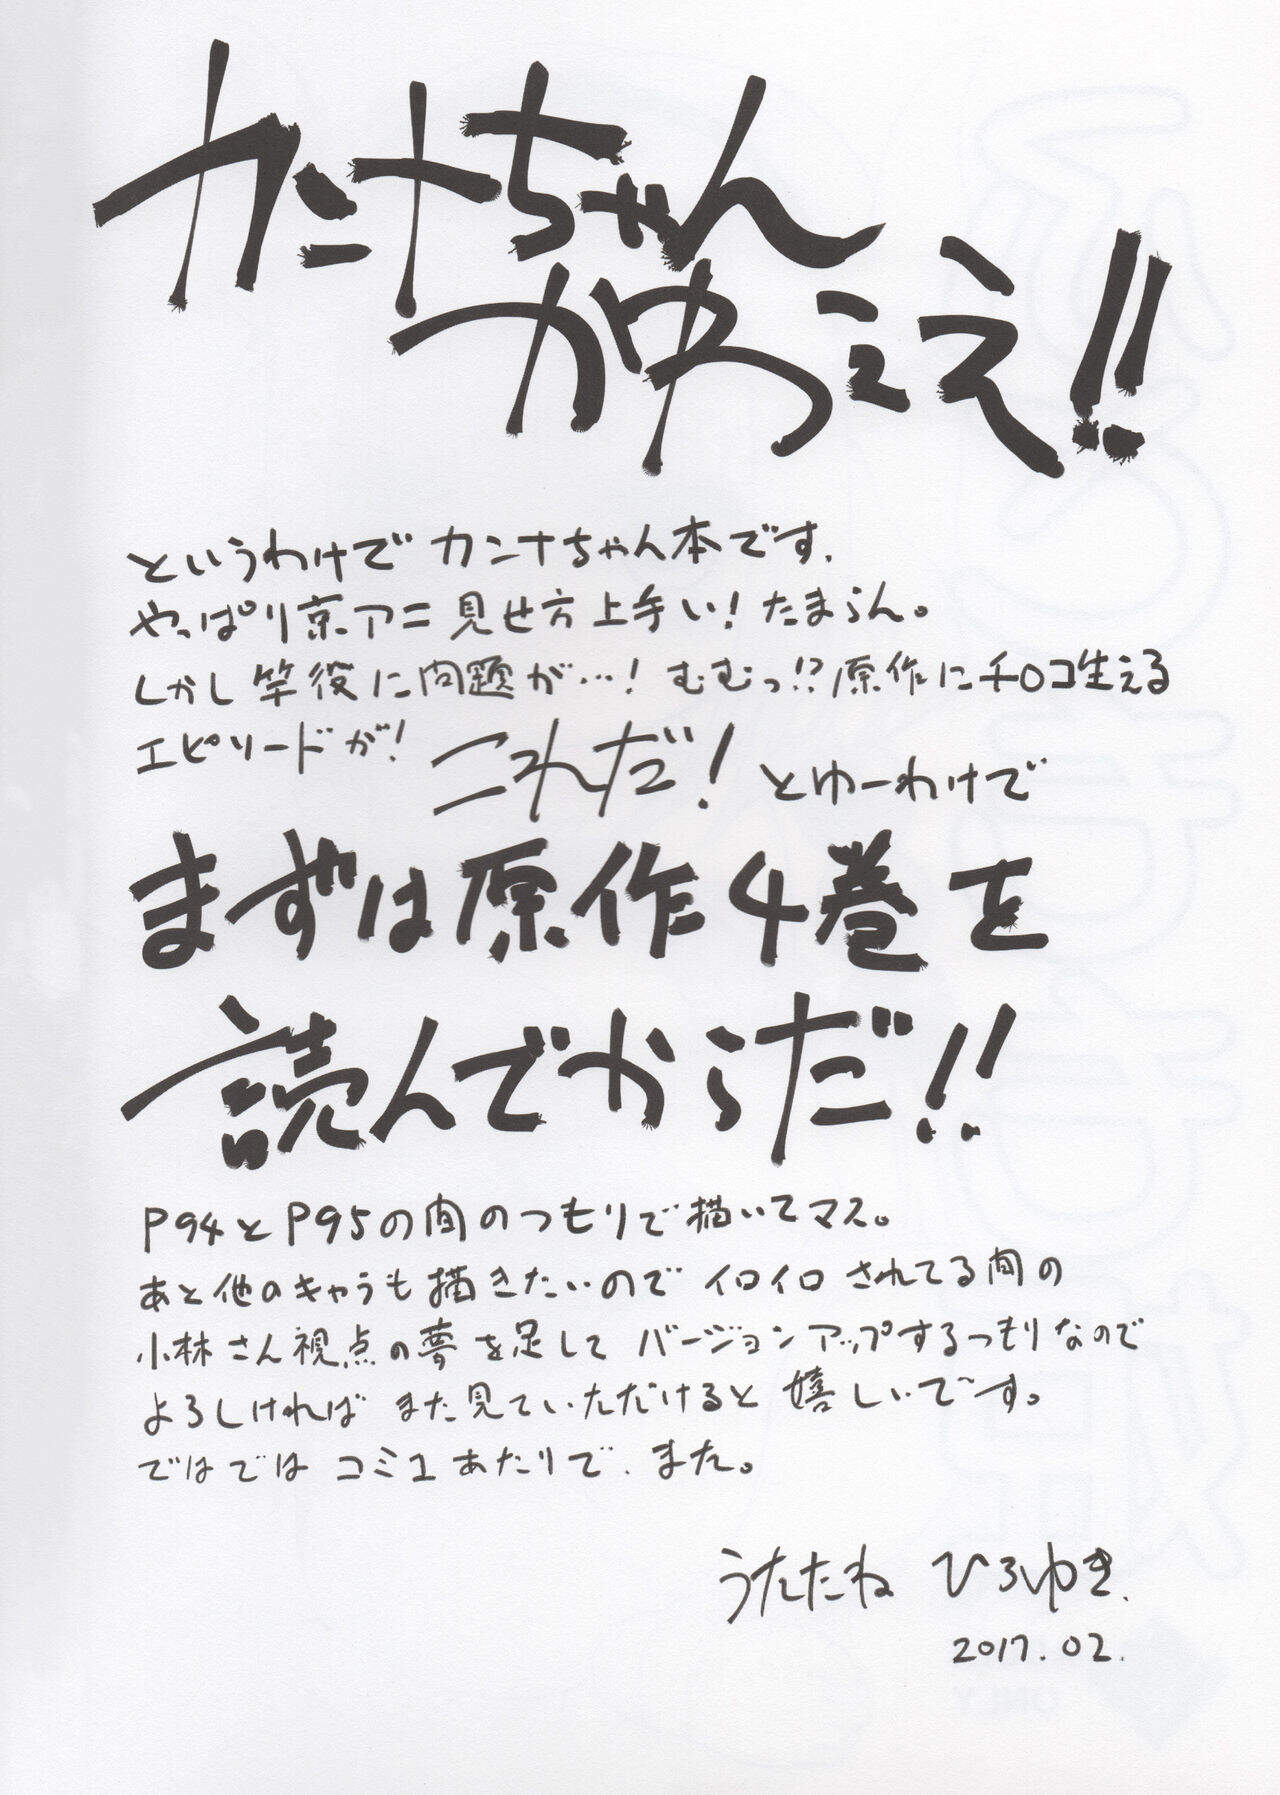 カンナちゃん
かゆうええ!!
というわけでカンナちゃん本です.
やっぱり京アニ見せ方上手い!たまらん。
しかし竿役に問題が…!むむっ!?原作にチロコ生える
エピソードが!これだ!とゆーわけで
まずは原作4巻を
読んでからだ!!
P94とP95の間のつもりで描いてマス。
あと他のキャラも描きたいのでイロイロされてる間の
小林さん視点の夢を足してバージョンアップするつもりなので
よろしければまた見ていただけると嬉しいです。
ではではコミ1あたりで.また。
うたたねひろゆき.
2017.02.